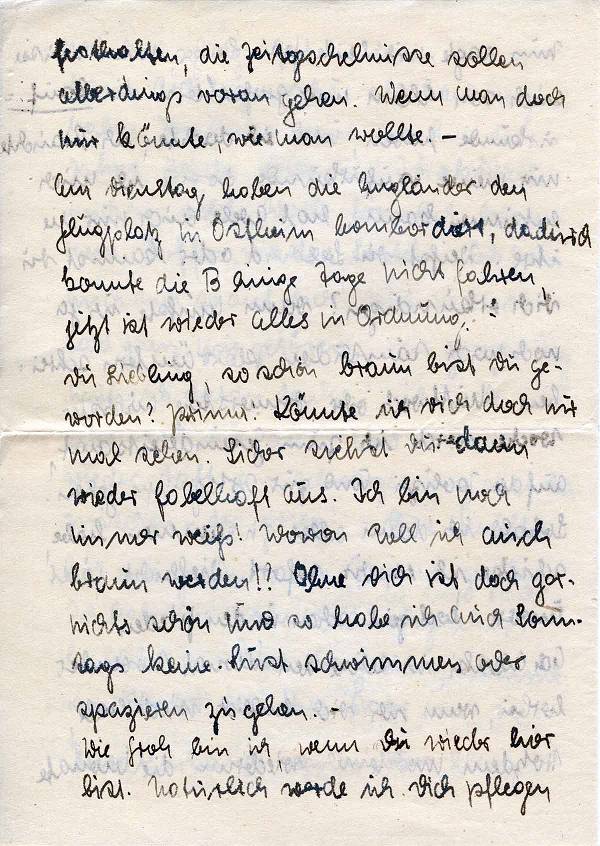 festhalten, die Zeitgeschehnisse sollen
allerdings voran gehen. Wenn man doch
nur könnte, wie man wollte. –
Am Dienstag haben die Engländer den
Flugplatz in Ostheim bombardiert, dadurch
konnte die B einige Tage nicht fahren,
jetzt ist wieder alles in Ordnung. –
Du Liebling, so schön braun bist du ge-
worden? prima. Könnte ich dich doch nur
mal sehen. Sicher siehst du dann
wieder fabelhaft aus. Ich bin noch
immer weiß! Wovon soll ich auch
braun werden!! Ohne dich ist doch gar-
nichts schön und so habe ich auch Sonn-
tags keine Lust schwimmen oder
spazieren zu gehen. –
Wie froh bin ich, wenn du wieder hier
bist. Natürlich werde ich dich pflegen